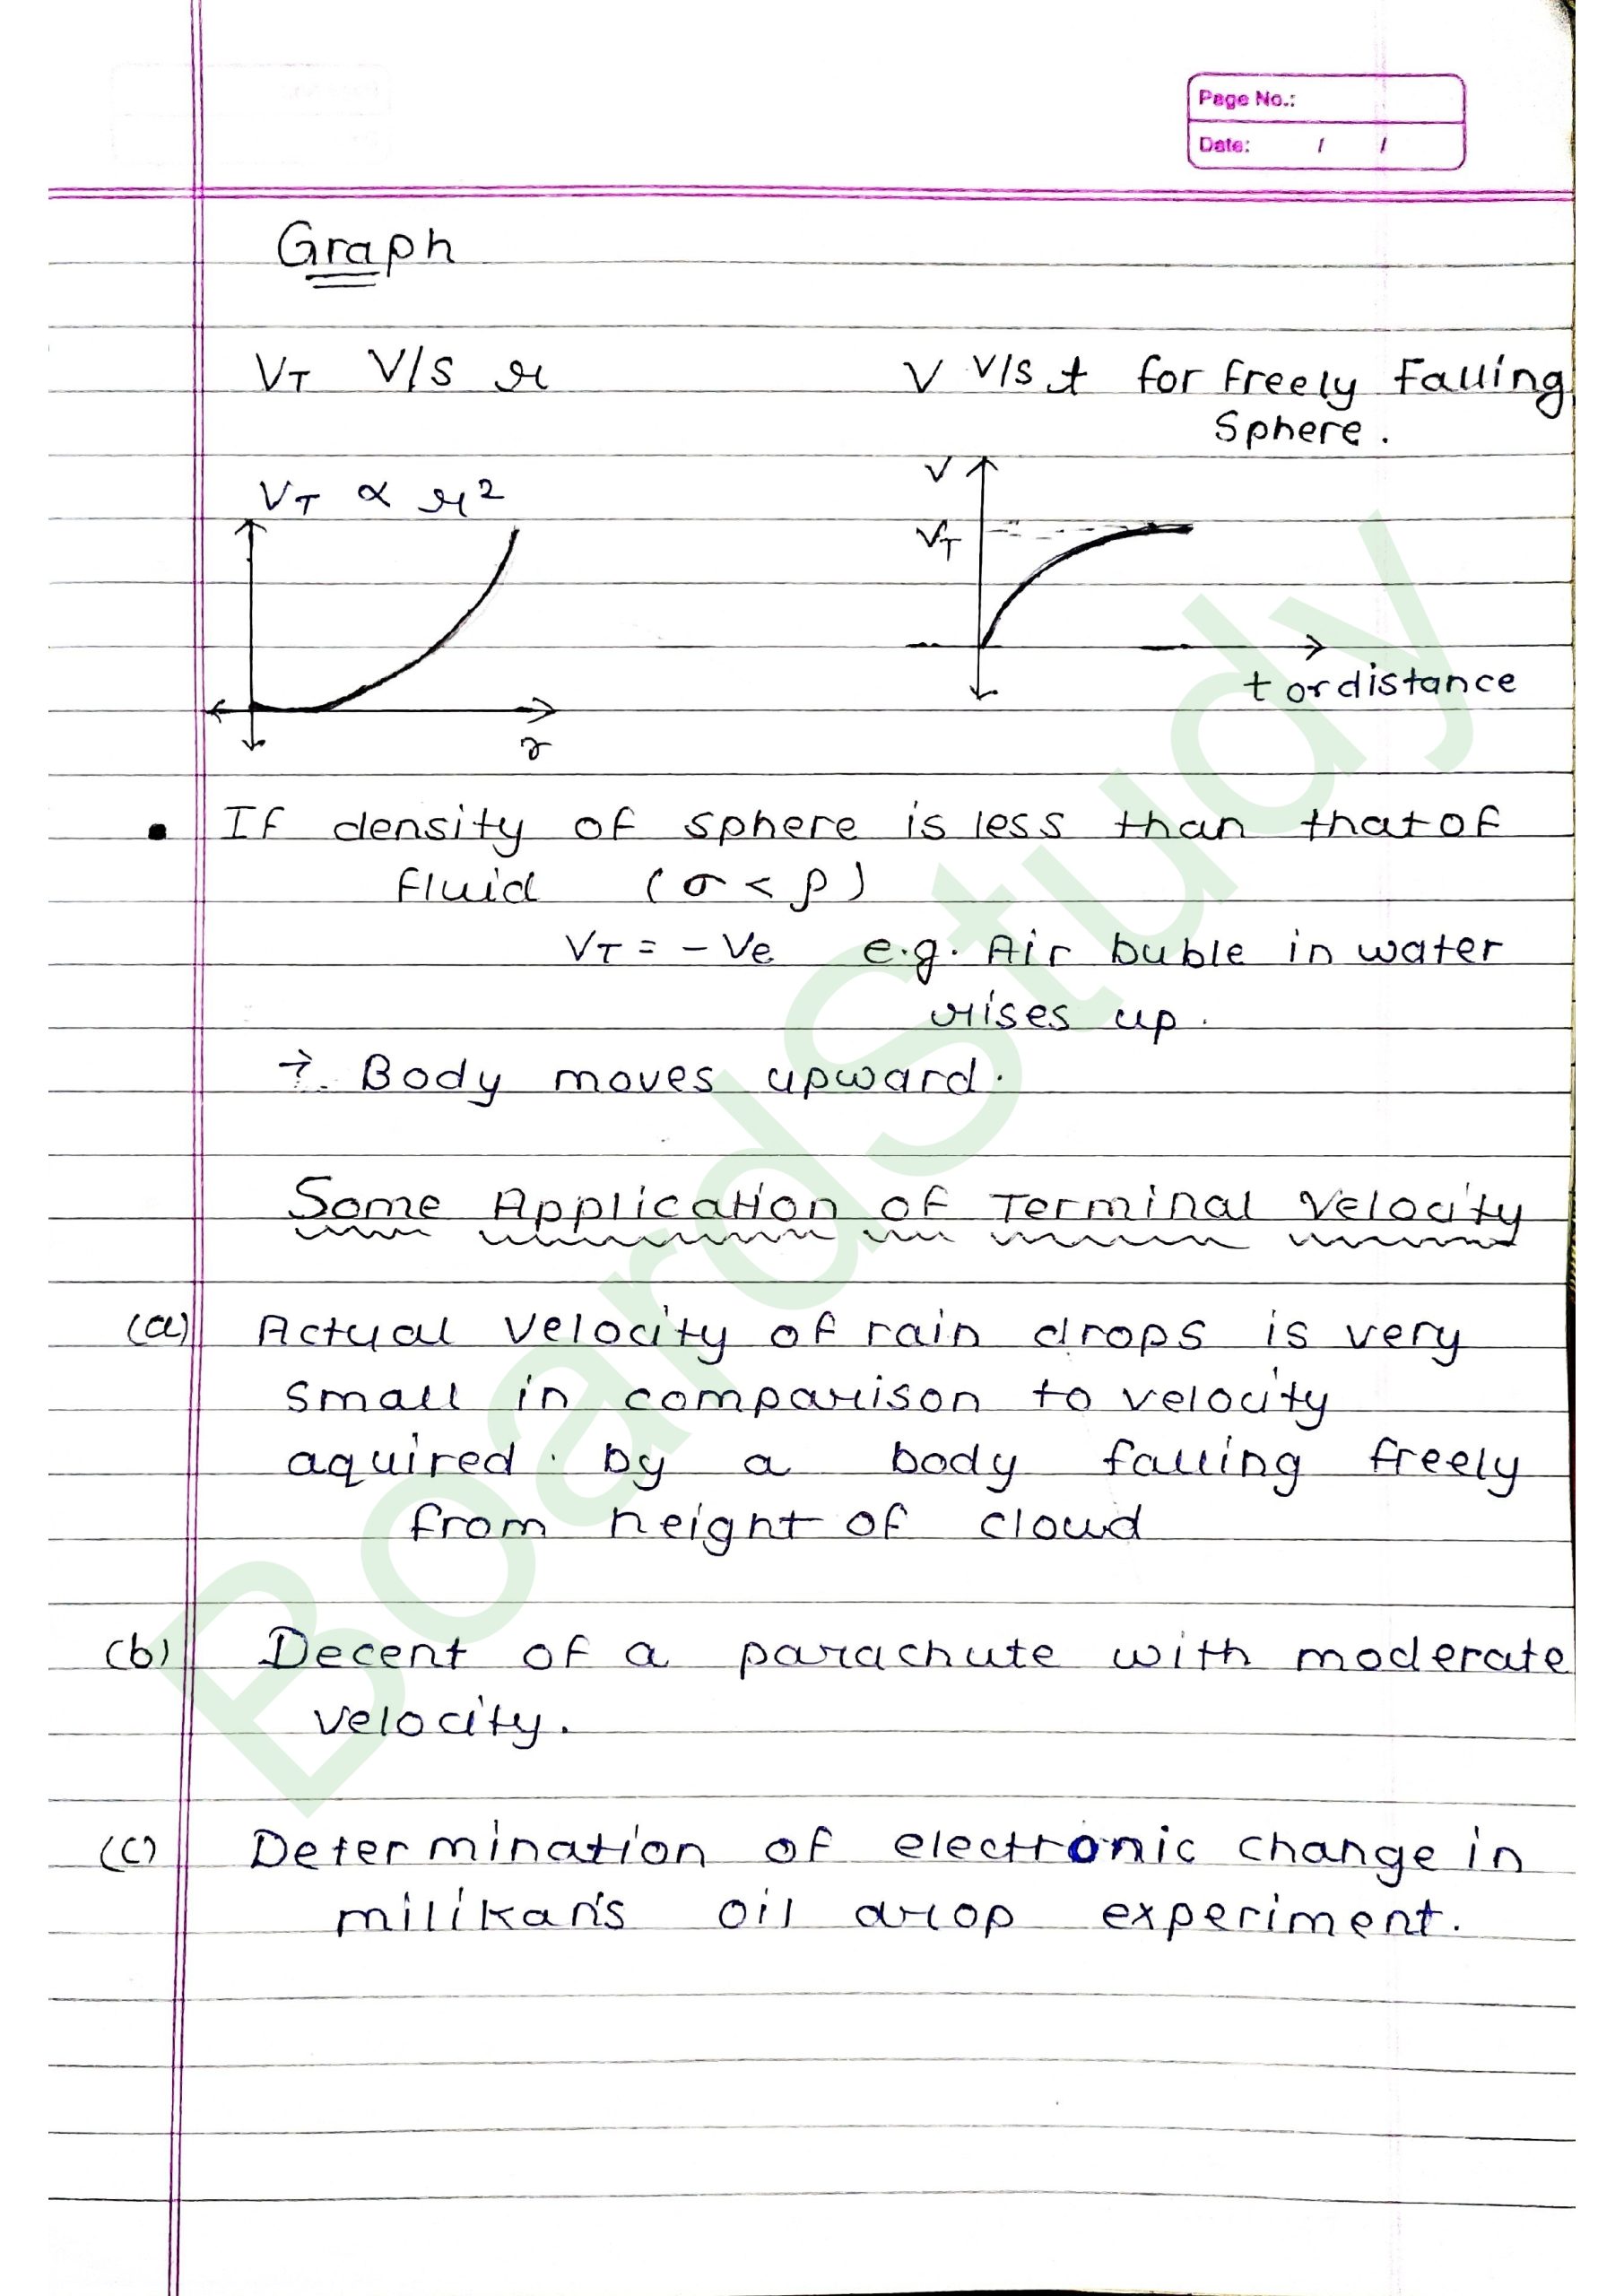 Page No.:
Date: / /
Graph
VT V/s r
V V/s t for freely Falling
Sphere.
VT ∝ r²
r
V
VT
t or distance
• If density of sphere is less than that of
fluid (σ < ρ)
VT = -Ve e.g. Air buble in water
rises up.
→ Body moves upward.
Some Application of Terminal Velocity
(a) Actual velocity of rain drops is very
small in comparison to velocity
aquired by a body falling freely
from height of cloud
(b) Decent of a parachute with moderate
velocity.
(c) Determination of electronic change in
milikan's oil drop experiment.
BoardStudy